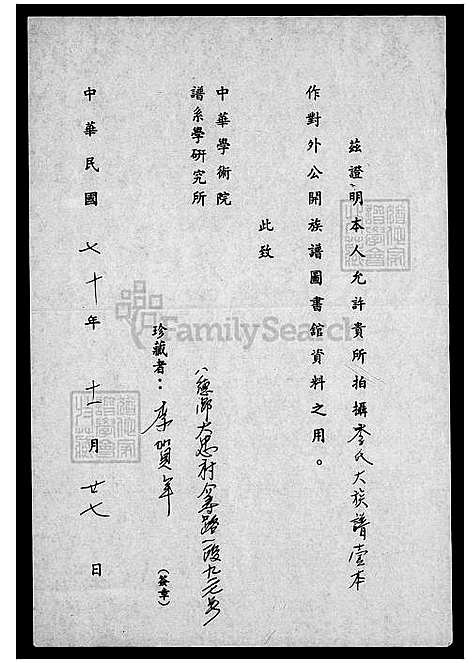 茲證明本人允許貴所拍攝李氏大族譜壹本
作對外公開族譜圖書館資料之用。
此致
中華學術院
譜系學研究所
八德鄉大忠村介壽路一段九元号
珍藏者：李賀年（簽章）
中華民國七十年十一月廿七日
FamilySearch